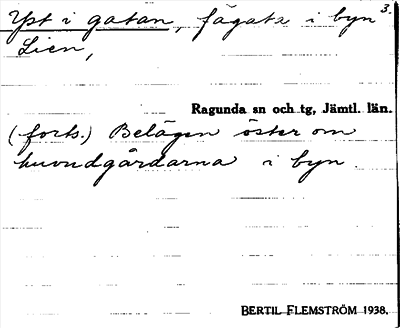 3.
Yst i gatan, fägata i byn
Lien,
Ragunda sn och tg, Jämtl. län.
(forts.) Belägen öster om
huvudgårdarna i byn.
BERTIL FLEMSTRÖM 1938.